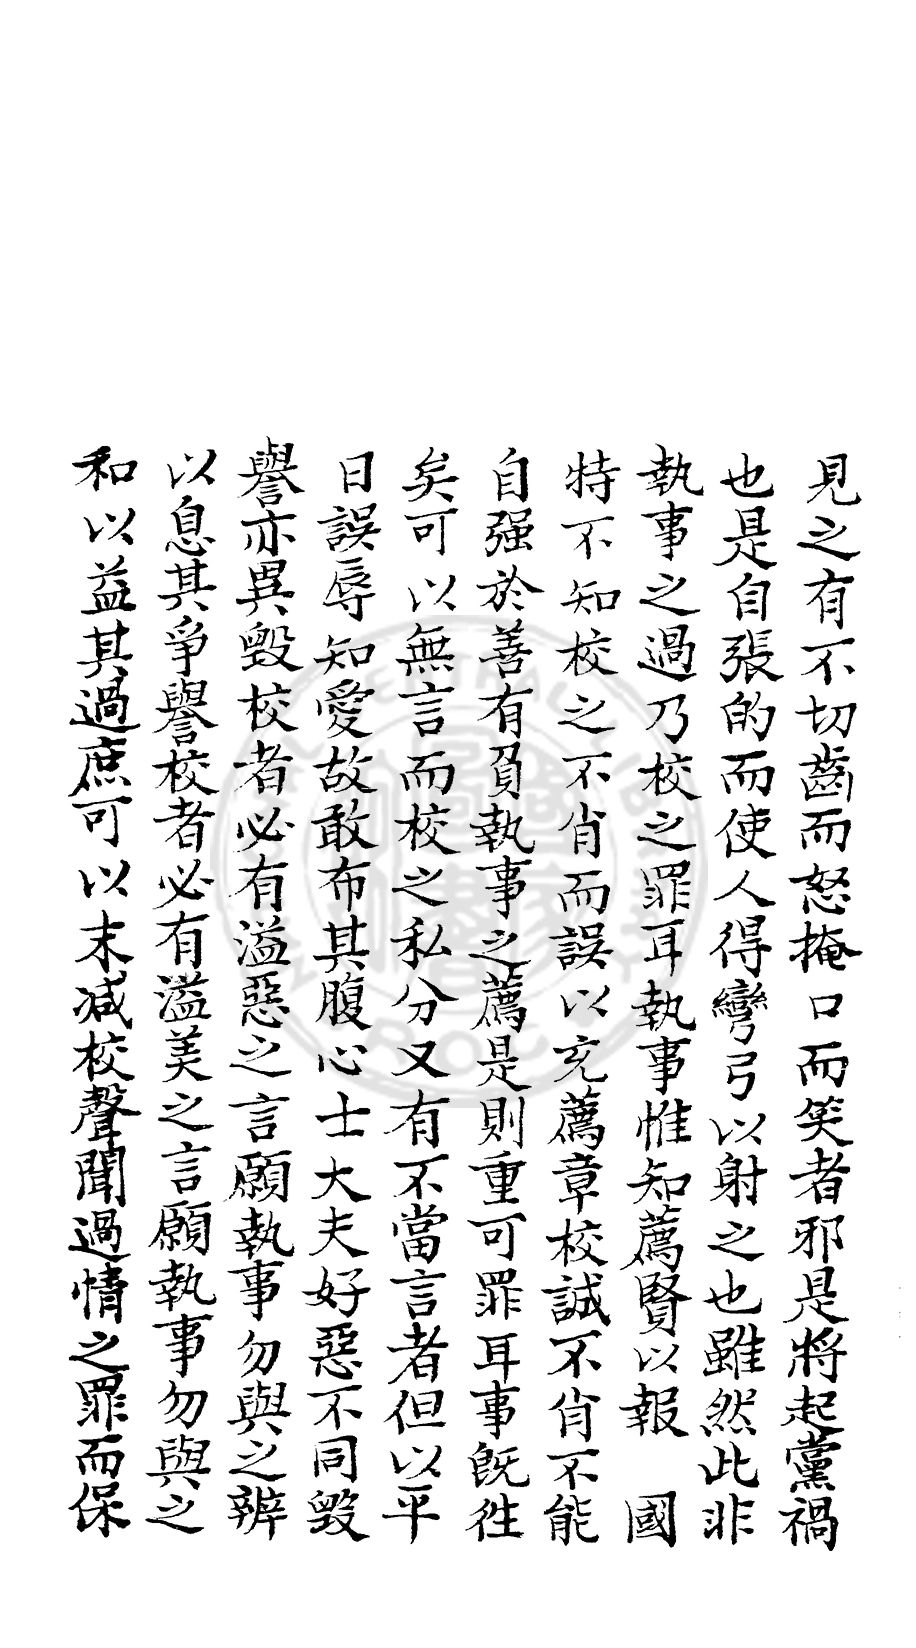 見之有不切齒而怒掩口而笑者邪是將起黨禍
也是自張的而使人得彎弓以射之也雖然此非
執事之過乃校之罪耳執事惟知薦賢以報　國
特不知校之不肖而誤以充薦章校誠不肖不能
自强於善有負執事之薦是則重可罪耳事旣徃
矣可以無言而校之私分又有不當言者但以平
日誤辱知愛故敢布其腹心士大夫好惡不同毀
譽亦異毀校者必有溢惡之言願執事勿與之辨
以息其爭譽校者必有溢美之言願執事勿與之
和以益其過庶可以末减校聲聞過情之罪而保